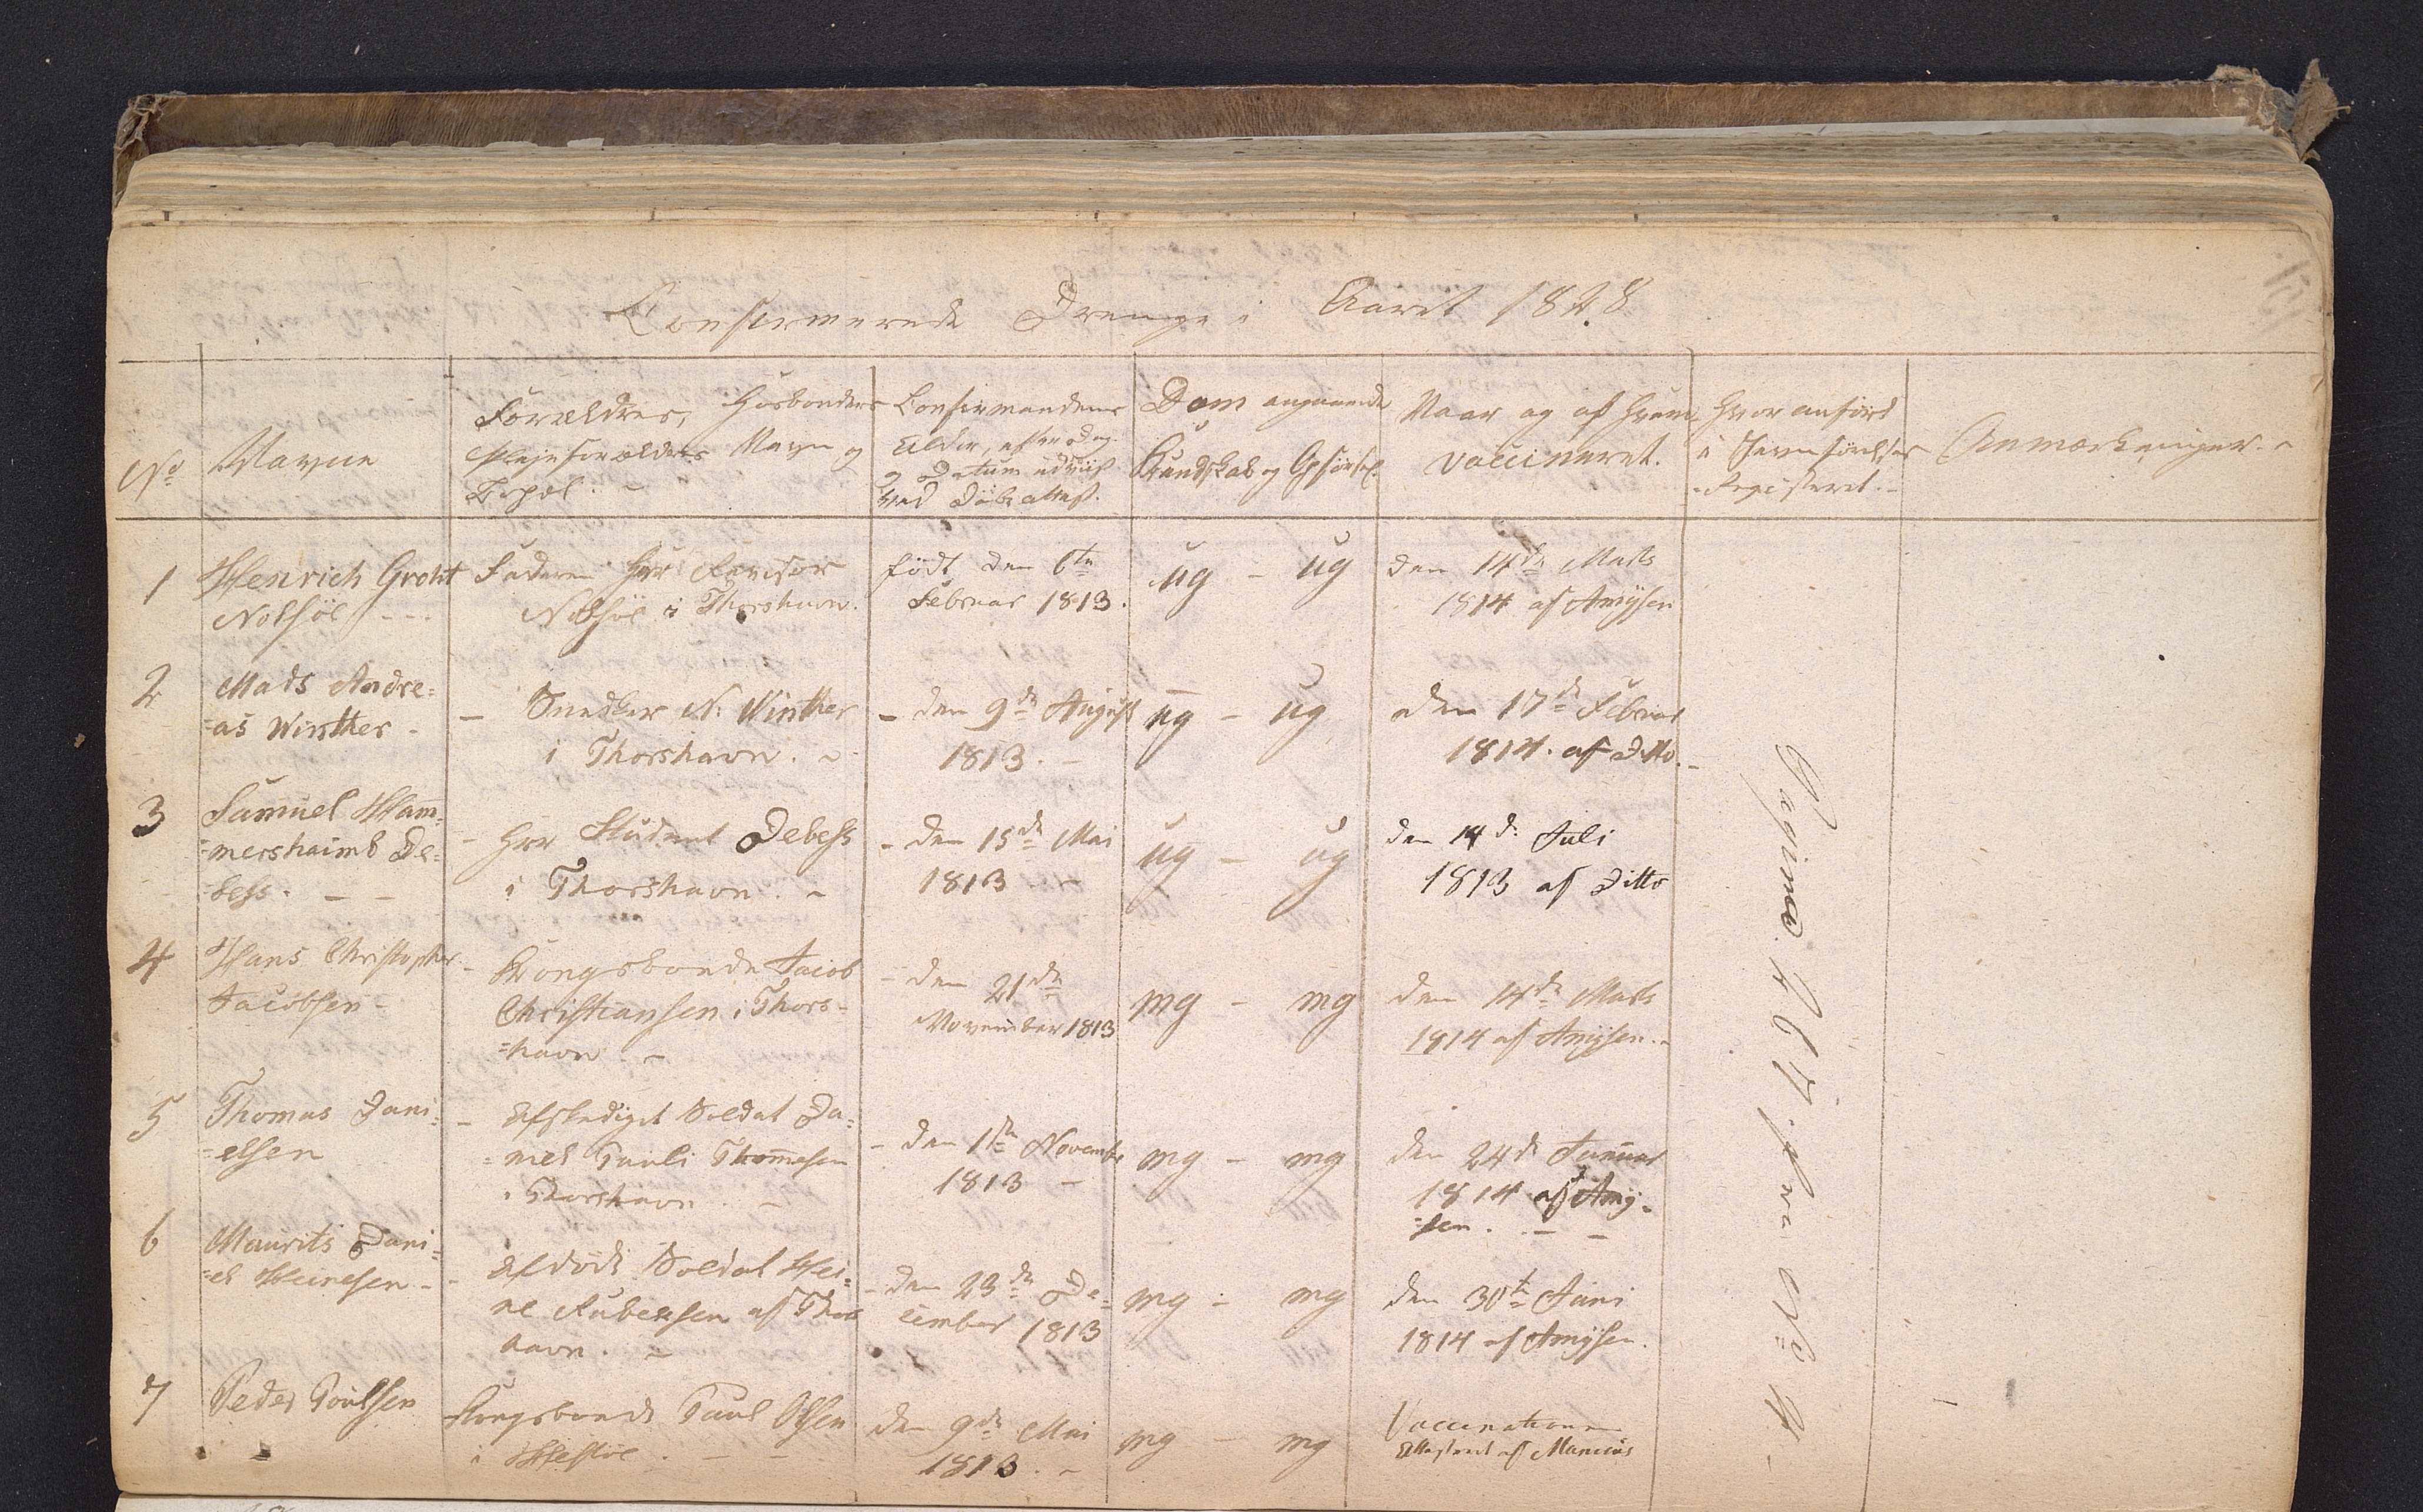 Confirmerede Drenge i Aaret 1828
No
Navne
Forældres, Husbonders
Plejeforældres Navn og
Bopæl. -
Confirmandens
Alder, efter Dag
og Datum udviist
ved Döbeattest.
Dom angaaende
Kundskab og Opförsel.
Naar og af hvem
vaccineret.
Hvor anfört
i Jevnförelses
Registeret. -
Anmærkninger. -
1
Henrich Groht
Nolsöe - - -
Faderen Hr Revisor
Nolsöe i Thorshavn.
födt den 6te
Februar 1813.
ug - ug
den 14de Marts
1814 af Amysen
2
Mads Andre=
=as Winther -
- Snedker N. Winther
i Thorshavn. -
- den 9de August
1813. -
ug - ug
den 17de Februar
1814. af Ditto. -
3
Samuel Ham=
=mershaimb De=
=bess. - -
- Hr Student Debess
i Thorshavn. -
- den 15de Mai
1813
ug - ug
den 14de Juli
1813 af Ditto
4
Hans Christopher
Jacobsen -
- Kongsbonde Jacob
Christiansen i Thors-
=havn. -
- den 21de
November 1813
mg - mg
den 14de Marts
1814 af Amysen. -
5
Thomas Dani=
=elsen
- Afskediget Soldat Da=
=niel Pauli Thomesen
i Thorshavn. -
- den 1te November
1813 -
mg - mg
den 24de Januar
1814 af Amy=
=sen. - -
6
Maurits Dani=
=el Heinesen -
- Afdöde Soldat Hei=
ne Rubeksen af Thors
havn. -
- den 23de De=
cember 1813
mg - mg
den 30te Juni
1814 af Amysen.
7
Peder Poulsen
Kongsbonde Paul Olsen
i Hestöe. - -
den 9de Mai
1813. -
mg - mg
Vaccinationen
Attesteret af Manicus
Pagina